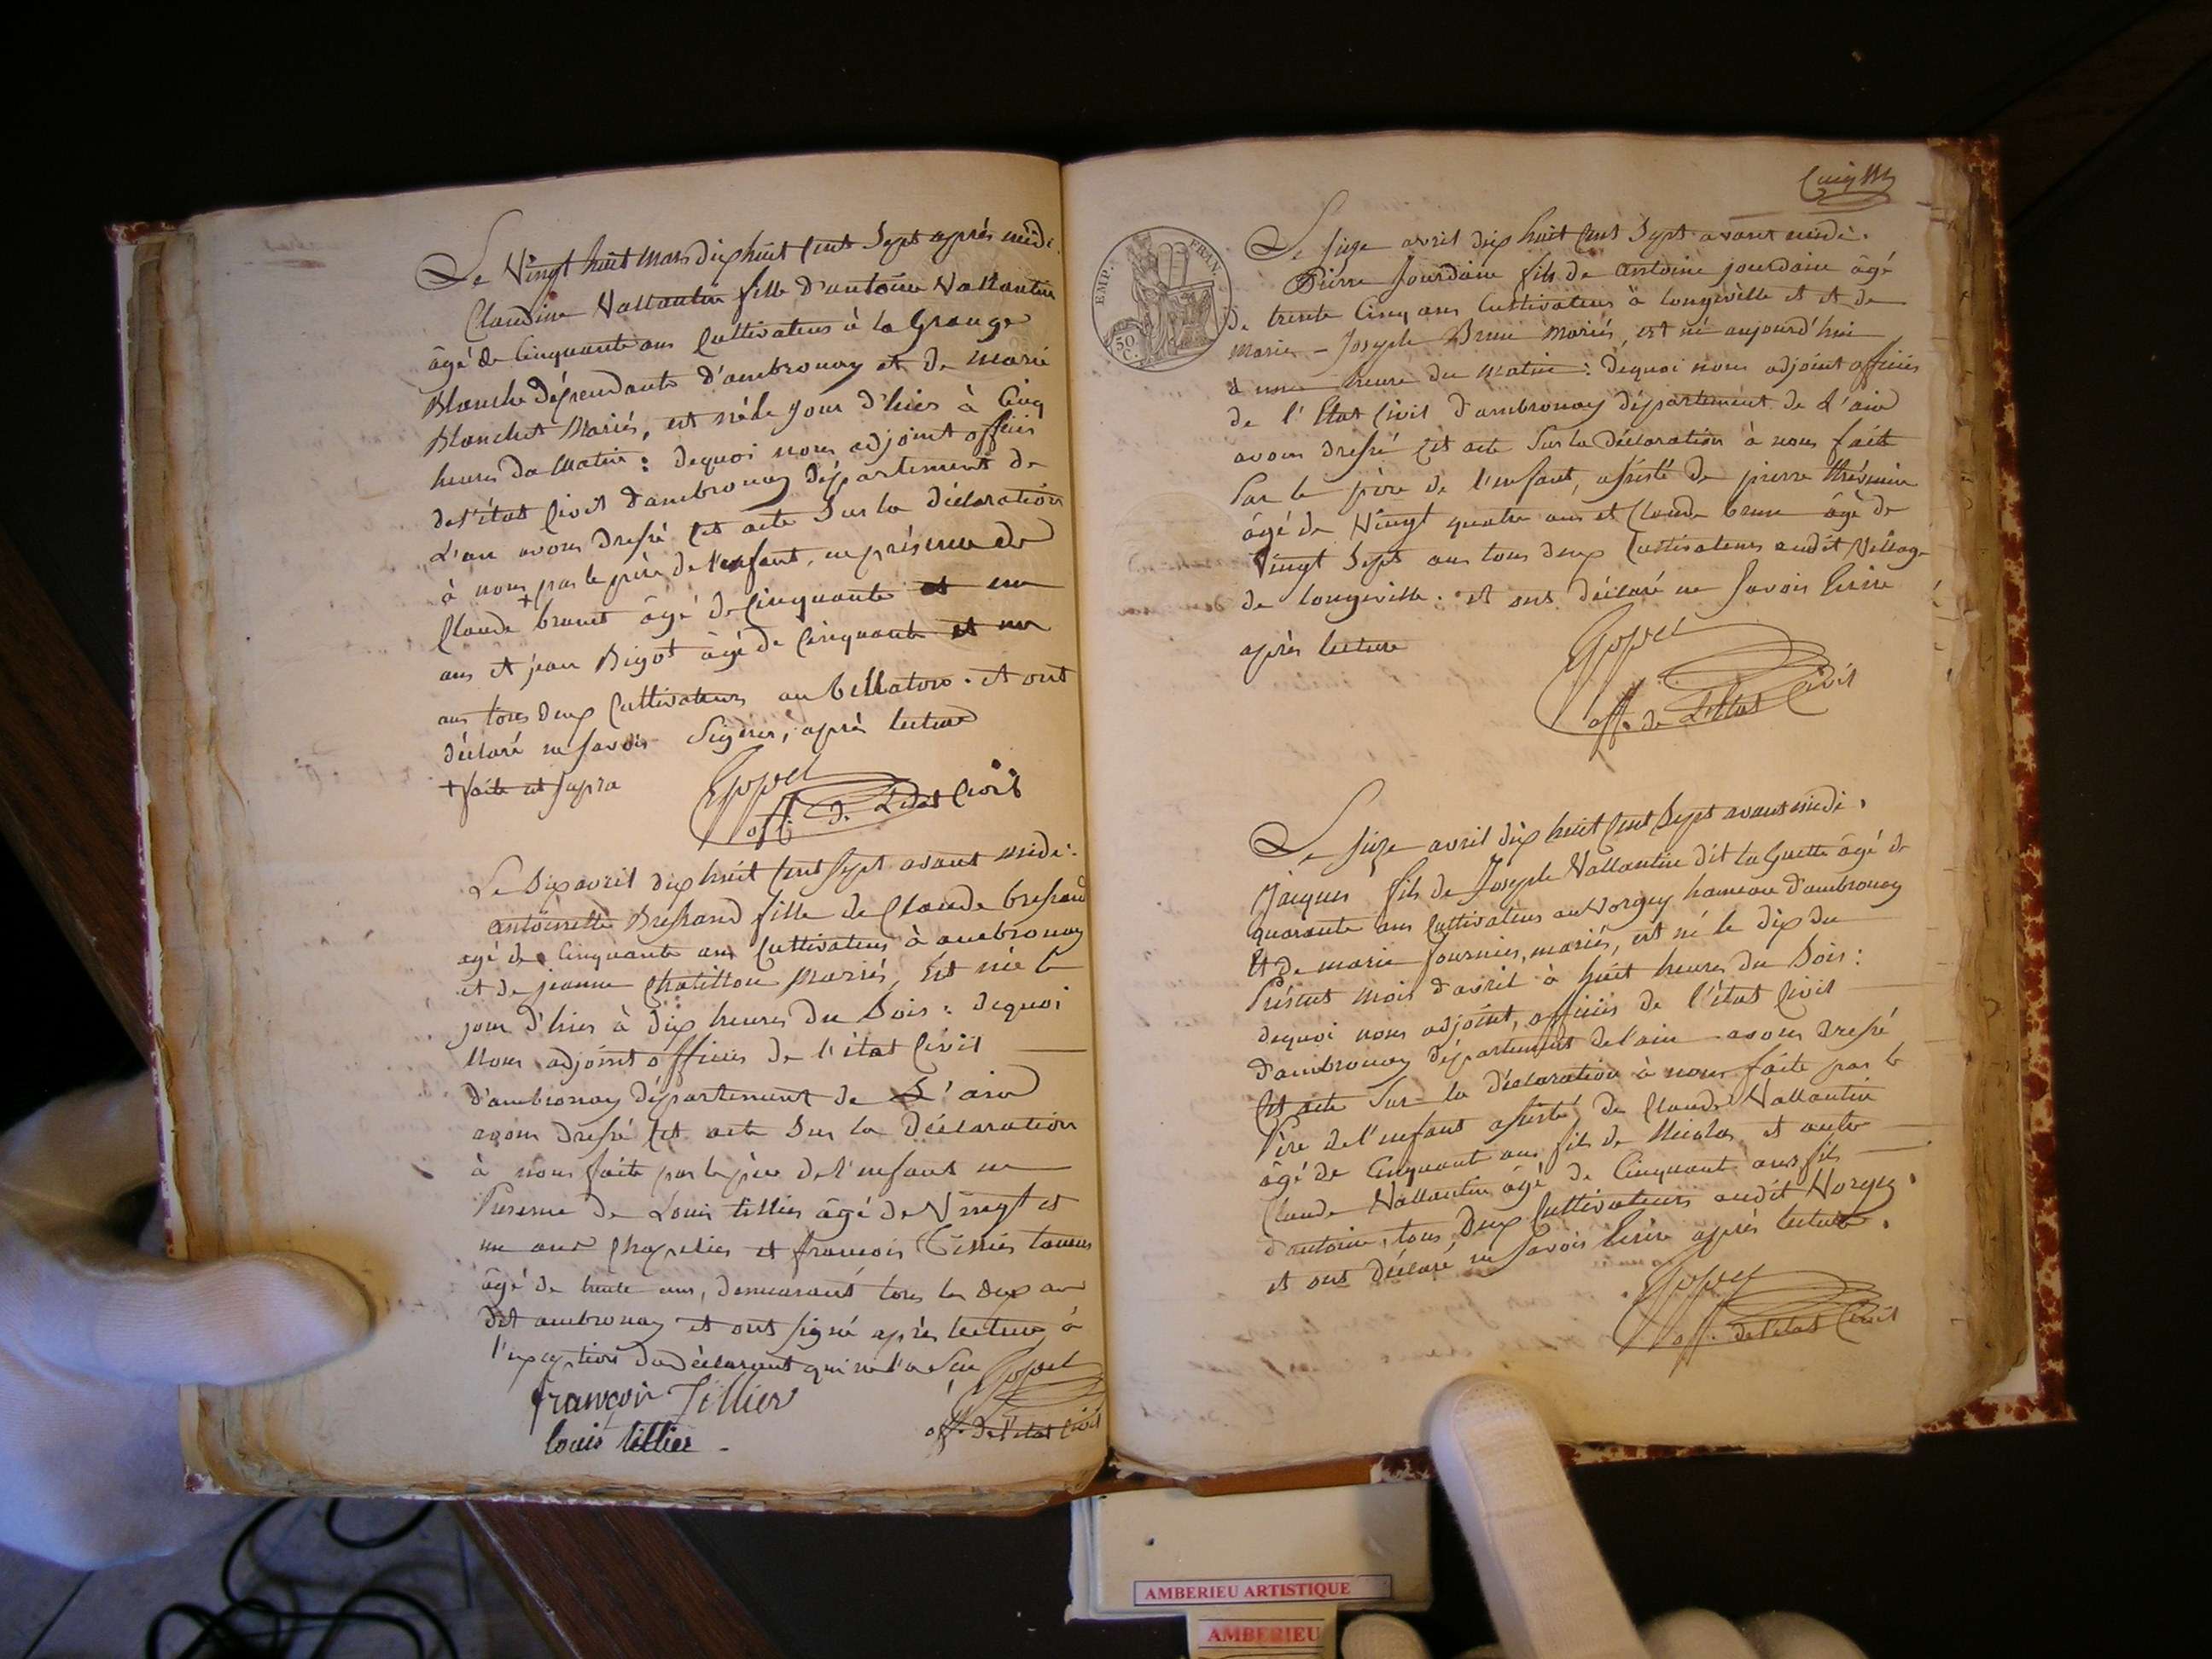 Le Vingt huit Mars dix huit Cent Sept après midi
Claudine Vallantin fille d'antoine Vallantin
âgé de Cinquante ans Cultivateur à la Grange
Blanche dépendante d'ambronay et de marie
Blanchet Mariés, est née le jour d'hier à Cinq
heures du Matin : dequoi nous adjoint officier
de l'état Civil d'ambronay département de
L'ain avons dressé Cet acte Sur la déclaration
à nous + par le père de l'enfant, en présence de
Claude brunet âgé de Cinquante et un
ans et jean Bigot âgé de Cinquante et un
ans tous deux Cultivateurs au bellaton. et ont
déclaré ne Savoir Signer, après lecture
+ faite ut supra
off. de L'etat Civil
Le Dix avril dix huit Cent Sept avant midi.
antoinette Bressand fille de Claude bressand
agé de Cinquante ans Cultivateur à ambronay
et de jeanne Chatillon Mariés, Est née le
jour d'hier à dix heures du Soir : dequoi
Nous adjoint officier de l'état Civil
d'ambronay département de L'ain
avons dressé Cet acte Sur la déclaration
à nous faite par le père de l'enfant en
Présence de Louis tillier âgé de Vingt et
un ans Chapelier et françois Tillier
âgé de trente ans, demeurant tous les deux au
dit ambronay et ont signé après lecture à
l'exception du déclarant qui ne l'a Seu
françois Tillier
louis tillier
off. de l'etat Civil
EMP. FRAN.
50 C.
Le Seize avril dix huit Cent Sept avant midi.
Pierre Jourdain fils de antoine jourdain âgé
de trente Cinq ans Cultivateur à longeville et et de
Marie - Josephe Brun Mariés, est né aujourd'hui
à une heure du Matin : dequoi nous adjoint officier
de l'Etat Civil d'ambronay département de L'ain
avons dressé Cet acte Sur la déclaration à nous faite
Par le père de l'enfant, assisté de pierre thévenin
âgé de Vingt quatre ans et Claude brun âgé de
Vingt Sept ans tous deux Cultivateurs audit Village
de longeville. et ont déclaré ne Savoir Ecrire
après lecture
off. de L'Etat Civil
Le Seize avril dix huit Cent Sept avant midi.
Jacques fils de Joseph Vallantin dit la Guette âgé de
quarante ans Cultivateur au Vorgey hameau d'ambronay
Et de marie fournier, mariés, est né le dix du
Présent mois d'avril à huit heures du Soir :
dequoi nous adjoint, officier de l'état Civil
d'ambronay département de l'ain avons dressé
Cet acte Sur la déclaration à nous faite par le
Père de l'enfant assisté de Claude Vallantin
âgé de Cinquante ans fils de Nicolas et autre
Claude Vallantin âgé de Cinquante ans fils
d'antoine, tous Deux Cultivateurs audit Vorgey.
et ont déclaré ne Savoir Ecrire après lecture.
off. de l'etat Civil
AMBERIEU ARTISTIQUE
AMBERIEU